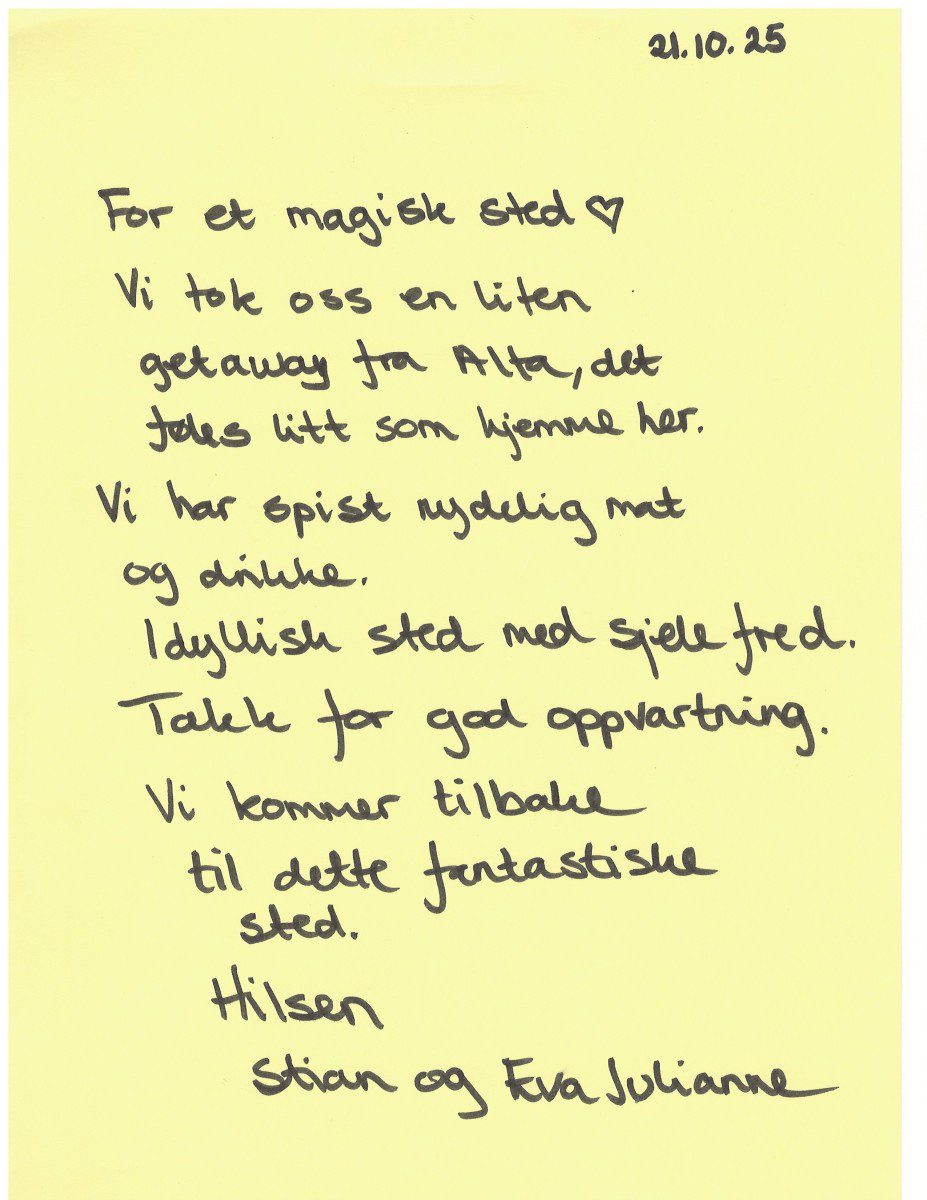 21.10.25
For et magisk sted ♡
Vi tok oss en liten
getaway fra Alta, det
føles litt som hjemme her.
Vi har spist nydelig mat
og drikke.
Idyllisk sted med sjelefred.
Takk for god oppvartning.
Vi kommer tilbake
til dette fantastiske
sted.
Hilsen
Stian og Eva Julianne